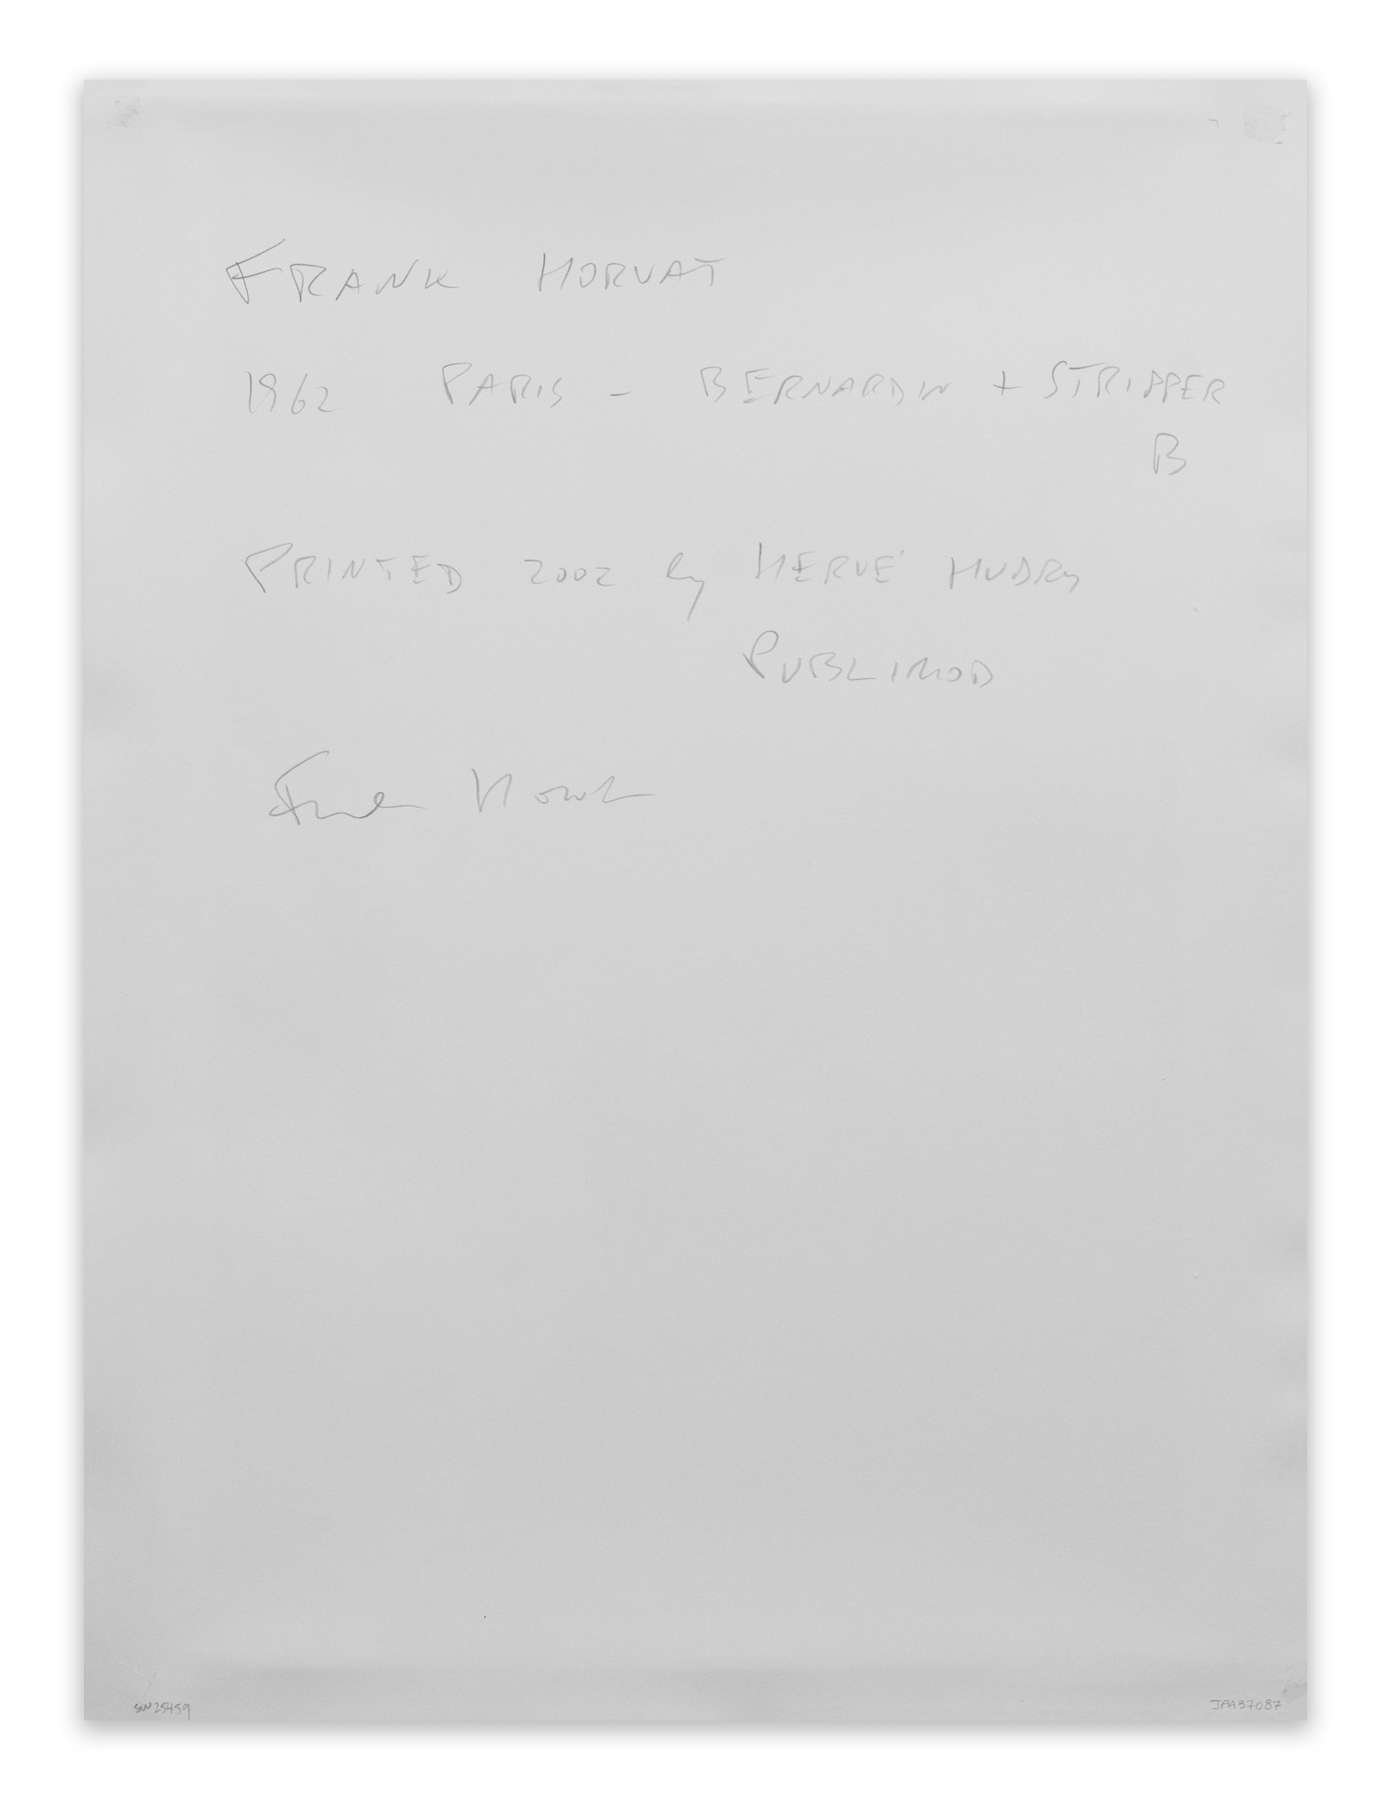 FRANK HORVAT
1962 PARIS - BERNARDIN + STRIPPER
B
PRINTED 2002 by HERVÉ HUDRY
PUBLIMOD
Frank Horvat
SW25459
JAA37087